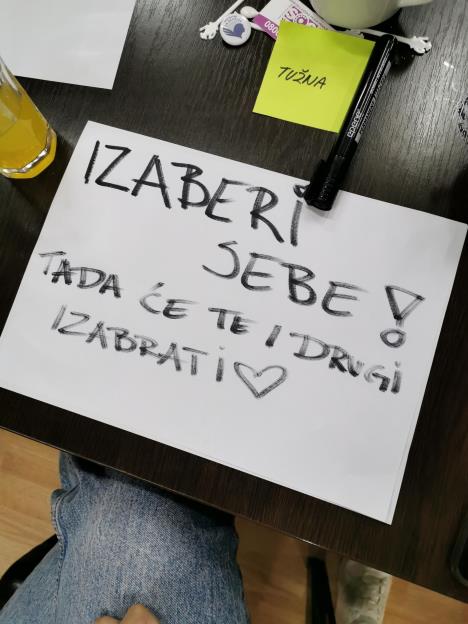 SOS
080
TUŽNA
IZABERI
SEBE!
TADA ĆE TE I DRUGI
IZABRATI ♡